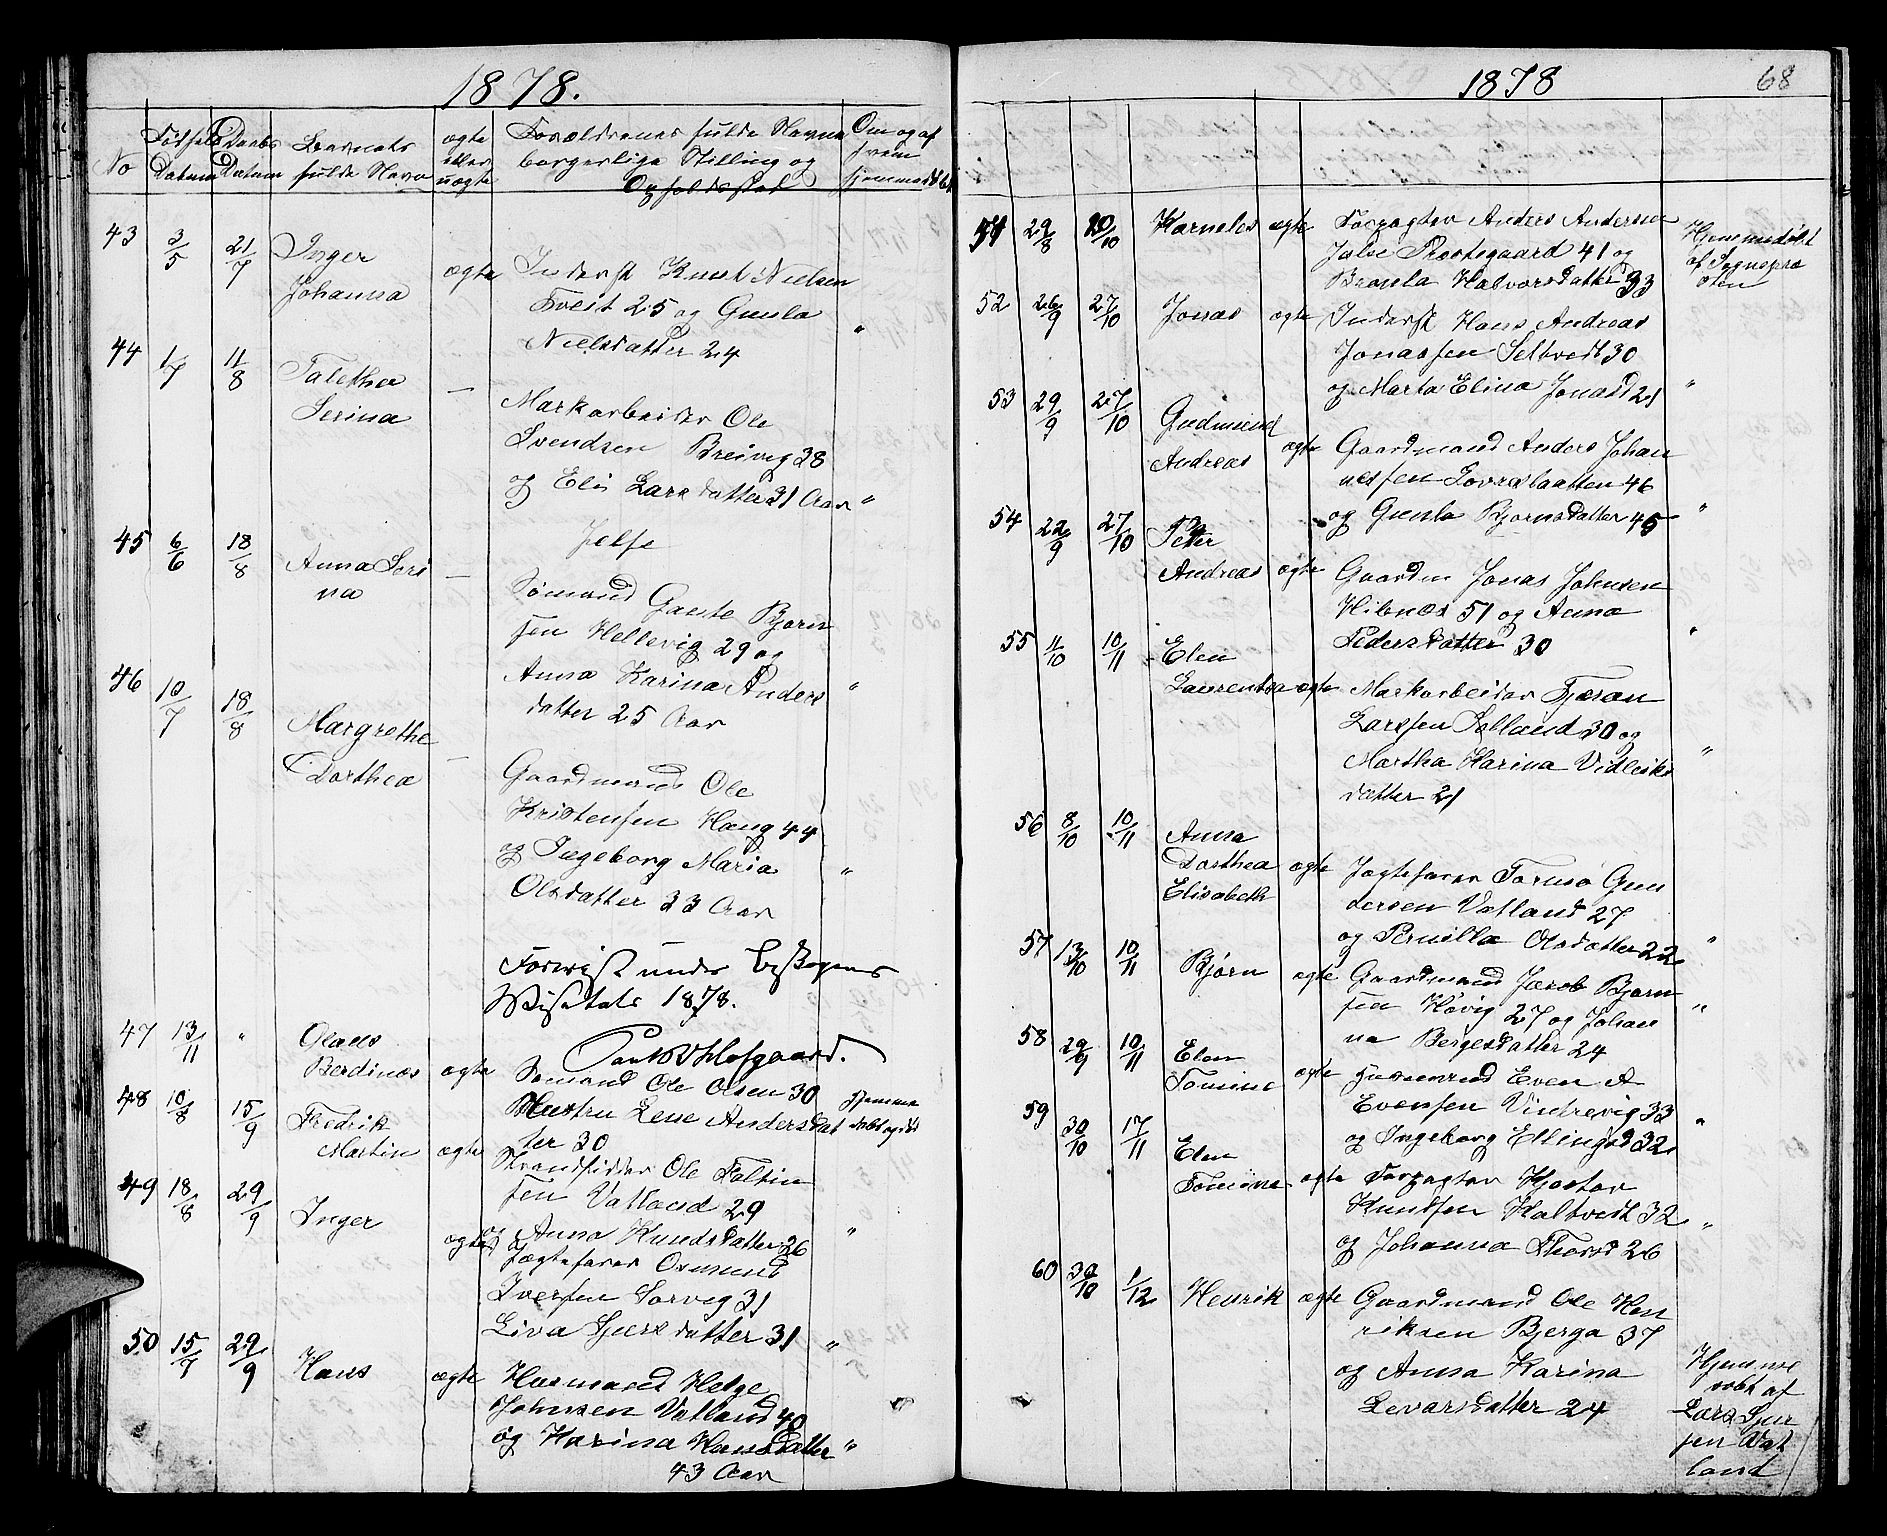 1878.
No
Fødsels Datum
Daabs Datum
Barnets fulde Navn
ægte eller uægte
Forældrenes fulde Navne borgerlige Stilling og Opholdssted
Om og af hvem hjemmedøbt
43 3/5 21/7 Inger Johanna ægte
Inderst Knut Nielsen
Tveit 25 og Gunla
Nielsdatter 24 "
44 1/7 11/8 Talethea Serina —
Markarbeider Ole
Svendsen Breivig 28
og Elis Larsdatter 31 Aar "
Jelse
45 6/6 18/8 Anna Seri
na —
Sømand Gaute Bjørn
sen Hellevig 29 og
Anna Karina Anders "
datter 25 Aar
46 10/7 18/8 Margrethe
Dorthea —
Gaardmand Ole
Kristensen Haug 44
og Ingeborg Maria "
Olsdatter 33 Aar
Foreviist under Bispens
Visitats 1878.
Hofgaard.
47 13/11 " Olaus
Berdines ægte
Sømand Ole Olsen 30
Hustru Lene Andersdat
ter 30
hjemme
døbt og død
48 10/8 15/9 Fredrik
Martin ægte
Strandsidder Ole Faltin
sen Vatland 29
og Anna Knudsdatter 26 "
49 18/8 29/9 Inger ægte
Jægtefører Osmund
Iversen Sørvig 31
Liva Sjursdatter 31 "
50 15/7 29/9 Hans ægte
Husmand Helge
Johnsen Vatland 40
og Karina Hansdatter "
43 Aar
1878
68
51 29/8 20/10 Karnelus ægte
Forpagter Anders Andersen
Jelse Prestegaard 41 og
Halvorsdatter 33
Hjemmedøbt
af Sognepre
sten
52 26/9 27/10 Jonas ægte
Inderst Hans Andreas
Jonassen Seltvedt 30
og Marta Elina Jonasd 21 "
53 29/9 27/10 Gudmund
Andreas ægte
Gaardmand Anders Johan
nessen Lovraslaatten 46
og Gunla Bjørnsdatter 45 "
54 22/9 27/10 Peter
Andreas ægte
Gaardm Jonas Johnsen
Hibnes 51 og Anna
Pedersdatter 30 "
55 11/10 10/11 Elen
Laurentsa ægte
Markarbeider
Larssen Solland 30 og
Martha Karina Vidleiks "
datter 21
56 8/10 10/11 Anna
Dorthea
Elisabeth ægte
Jægtefører Tormo Gun
dersen Vatland 27
og Pernilla Olsdatter 22 "
57 13/10 10/11 Bjørn ægte
Gaardmand Jacob Bjørn
sen Høvig 27 og Johan "
na Bergesdatter 24
58 29/9 10/11 Elen
Tomine ægte
Husmand Even A
Evensen Vindrevig 33
og Ingeborg Ellingsd 32 "
59 30/10 17/11 Elen
Tomine ægte
Forpagter Kjostov
Knudsen Haltvedt 32
og Johanna Thorsd 26 "
60 30/10 1/12 Henrik ægte
Gaardmand Ole Hen
riksen Bjerga 37
og Anna Karina
Levarsdatter 24
Hjemme
døbt af
Lars Sjur
sen Vat
land